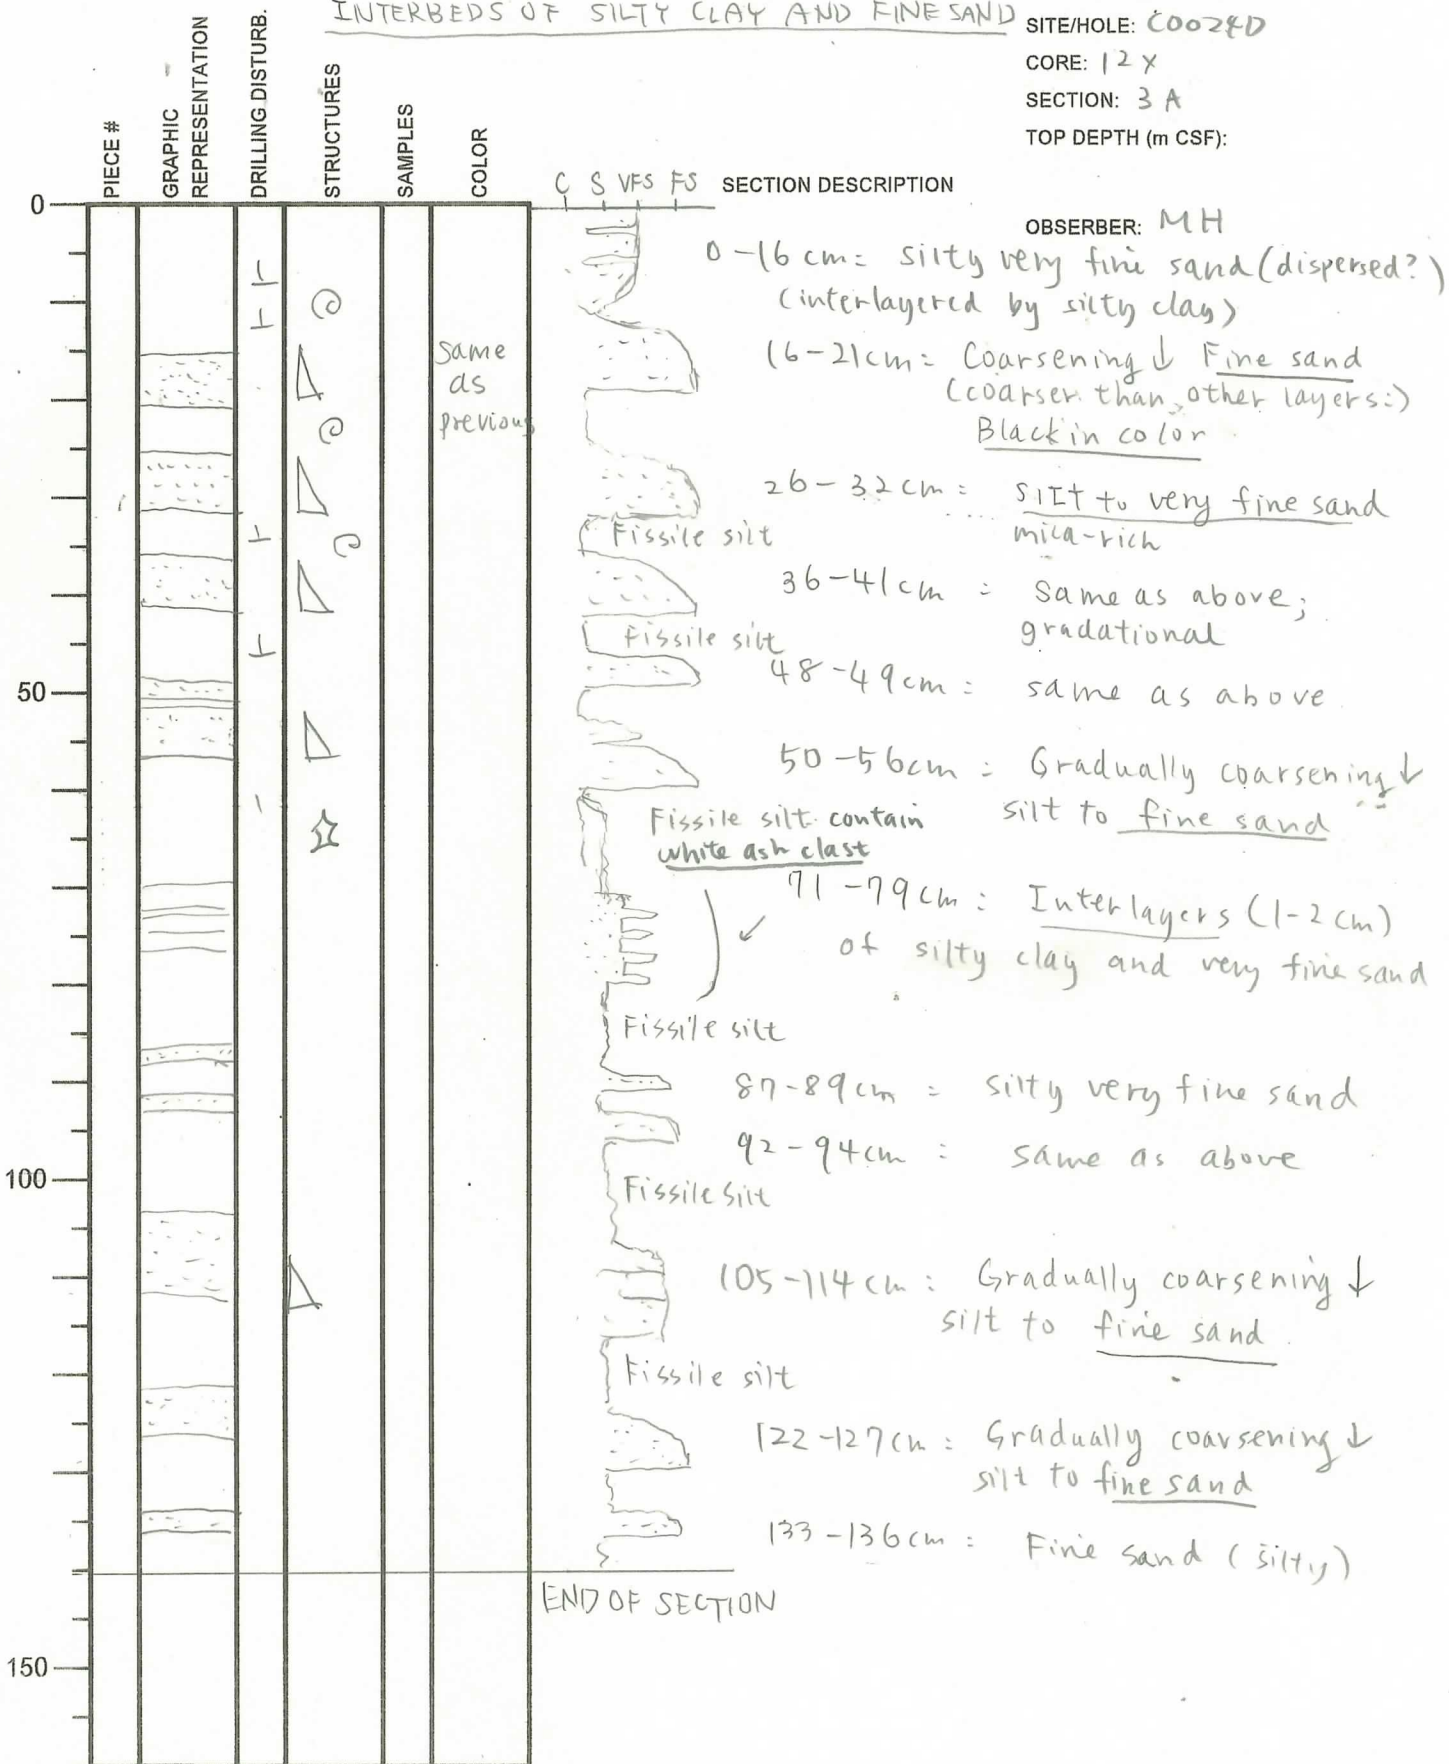 INTERBEDS OF SILTY CLAY AND FINE SAND
SITE/HOLE: C0024D
CORE: 12X
SECTION: 3A
TOP DEPTH (m CSF):
OBSERBER: MH
PIECE #
GRAPHIC REPRESENTATION
DRILLING DISTURB.
STRUCTURES
SAMPLES
COLOR
C S VFS FS SECTION DESCRIPTION
0
0-16 cm = silty very fine sand (dispersed?)
(interlayered by silty clay)
Same
as
previous
16-21cm = Coarsening ↓ Fine sand
(coarser than other layers:)
Black in color
26-32 cm = silt to very fine sand
mica-rich
Fissile silt
36-41cm = Same as above;
gradational
Fissile silt
48-49cm = same as above
50
50-56cm = Gradually coarsening ↓
silt to fine sand
Fissile silt contain
white ash clast
71-79cm : Interlayers (1-2 cm)
of silty clay and very fine sand
Fissile silt
87-89cm = silty very fine sand
92-94cm : same as above
100
Fissile silt
105-114cm : Gradually coarsening ↓
silt to fine sand
Fissile silt
122-127cm = Gradually coarsening ↓
silt to fine sand
133-136cm = Fine sand (silty)
END OF SECTION
150